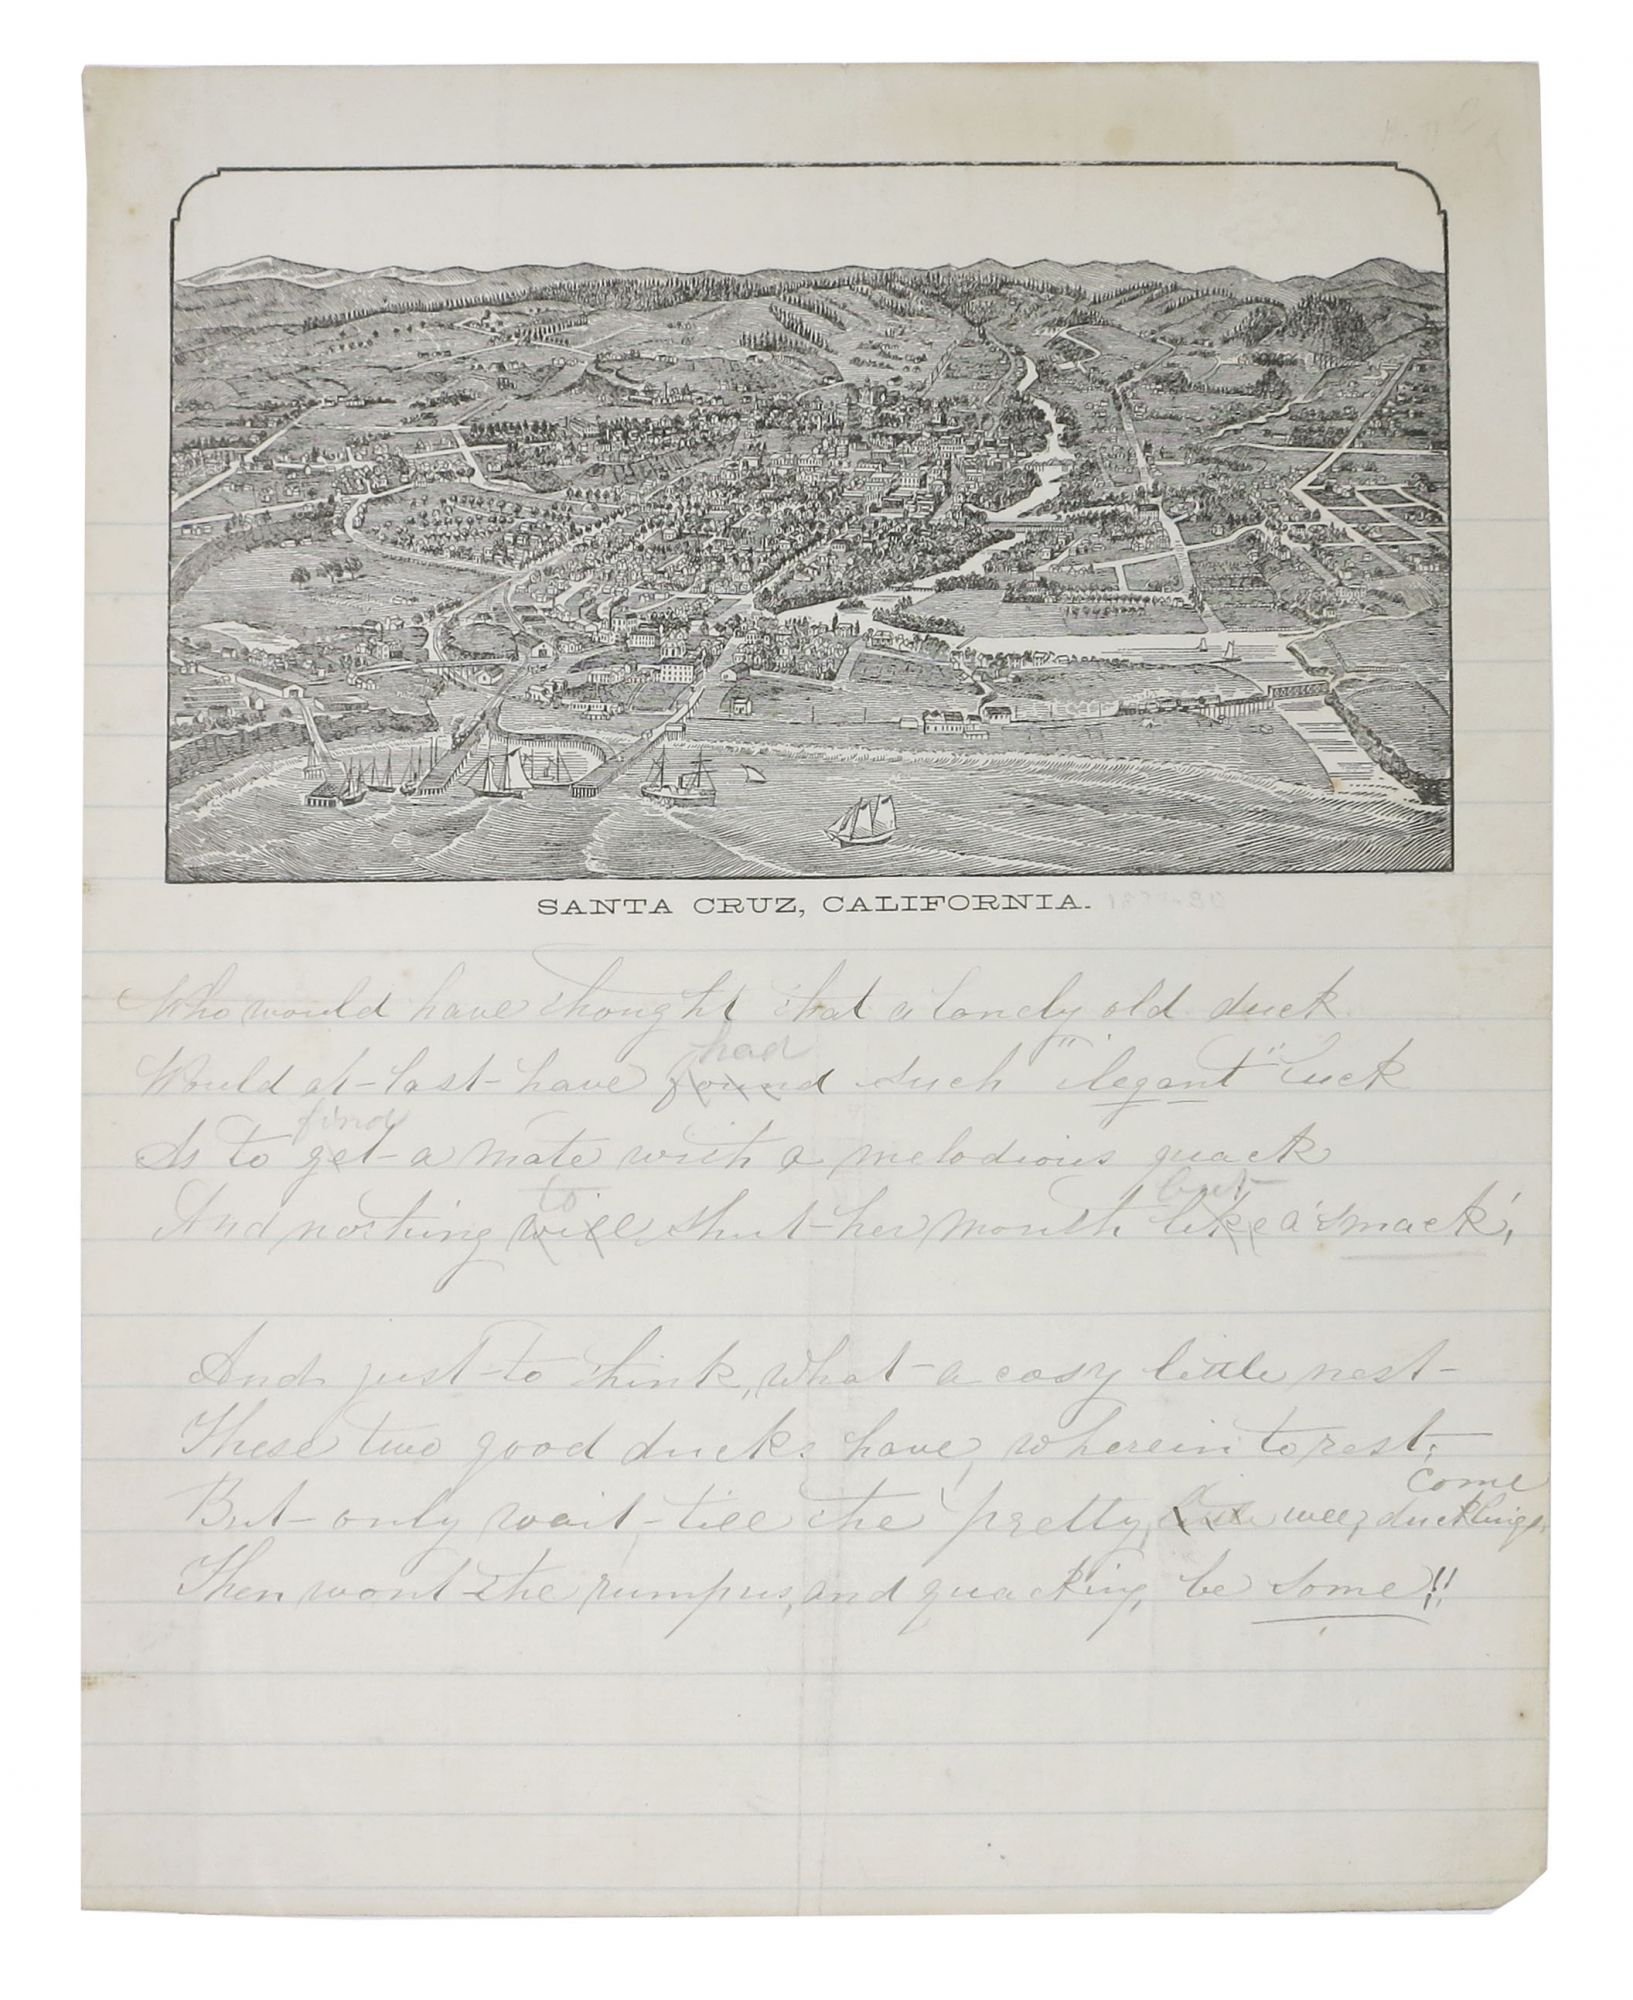 SANTA CRUZ, CALIFORNIA.
Who would have thought that a lonely old duck
had
Would at last have found such "elegant" luck
find
As to get a mate with a melodious quack
to but
And nothing will shut her mouth like a 'smack',
And just to think, what a cosy little nest
These two good ducks have, wherein to rest;
come
But only wait till the pretty, wee, ducklings,
Then wont the rumpus, and quacking, be some!!